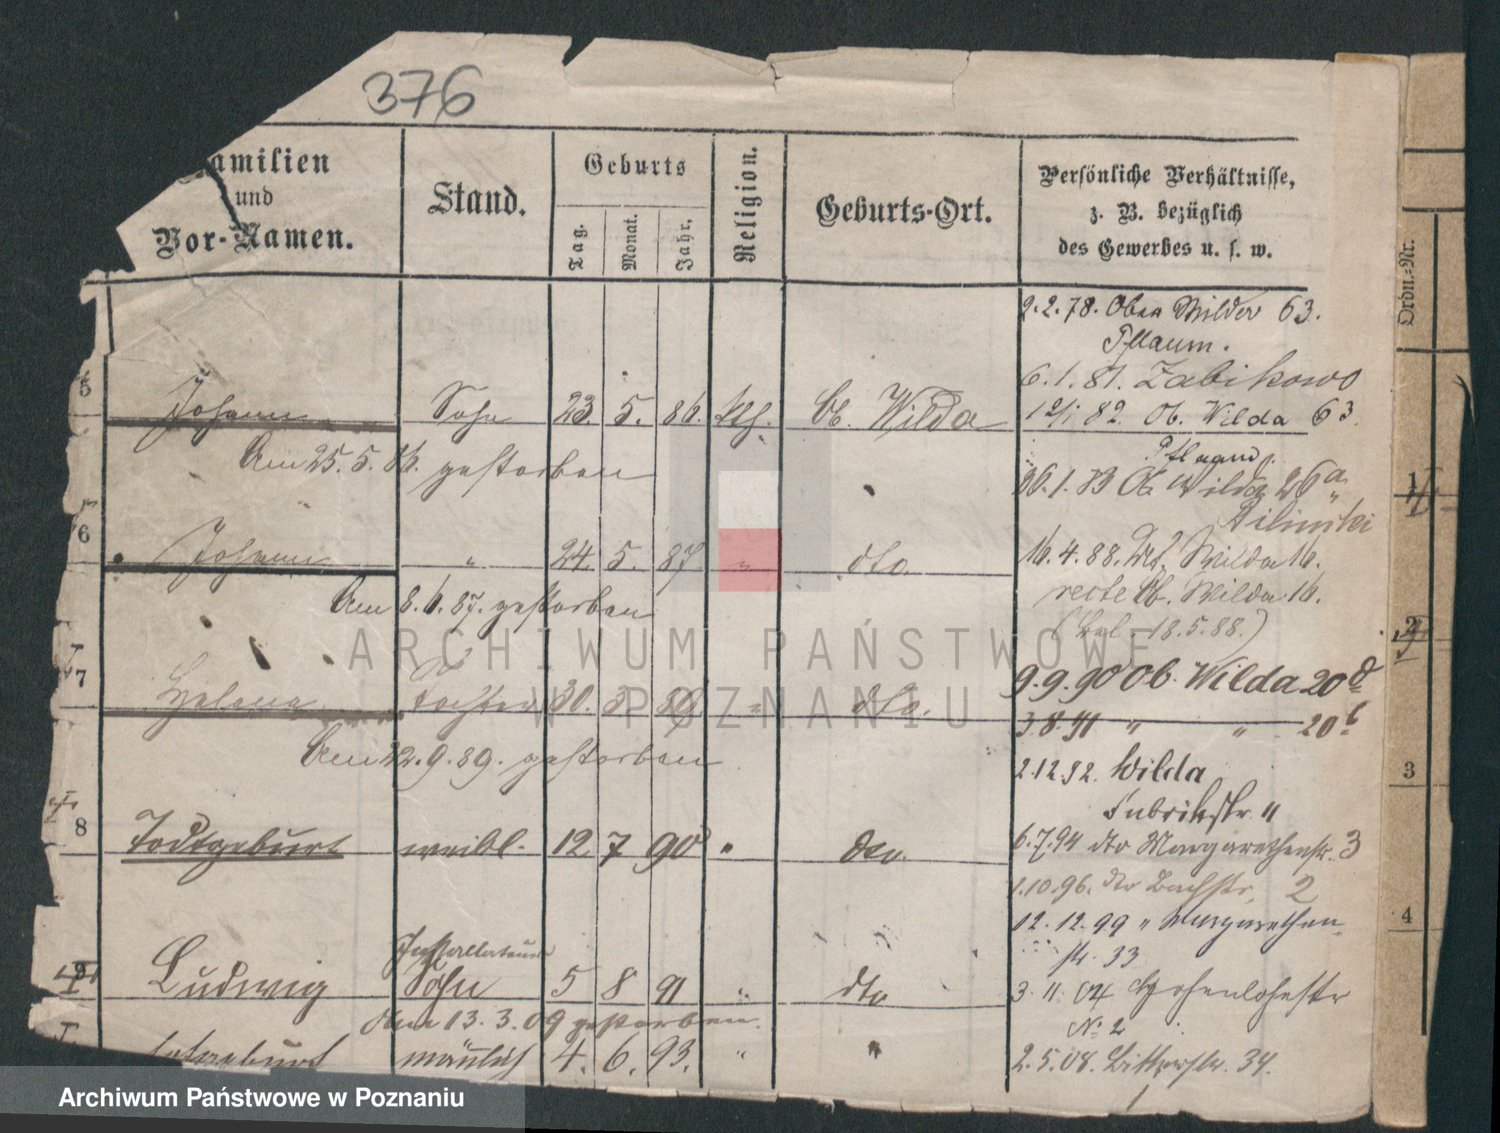 376
Familien
und
Vor-Namen.
Stand.
Geburts
Tag.
Monat.
Jahr.
Religion.
Geburts-Ort.
Persönliche Verhältnisse,
z. B. bezüglich
des Gewerbes u. s. w.
Ordn.-Nr.
2.2.78. Ober Wilder 63.
Pflaum.
6.1.81. Zabikowo
5 Johann Sohn 23. 5. 86. kth. Ob. Wilda
82. Ob. Wilda 63.
Am 25.5.86. gestorben
.1.83 Ob. Wilda 26a
6 Johann " 24. 5. 87 " dto
16.4.88. Wilda 16.
recte Ob. Wilda 16.
Am 8.6.87. gestorben
18.5.88.)
7 Helena Tochter 30. 3 89 " dto.
9.9.90 Ob. Wilda 20 d
3.8.91 " " 20 b
Am 22.9.89. gestorben
2.12.92. Wilda
Fabrikstr. 11
8 Todtgeburt weibl. 12 7 90 " dto.
6.7.94 dto Margarethenstr. 3
1.10.96. dto Bachstr. 2
12.12.99 " Margarethen-
str. 33
9 Ludwig Installateur
Sohn 5 8 91 " dto
3.11.04 Hohenlohestr
No 2
Am 13.3.09 gestorben.
Todtgeburt männlich 4. 6. 93. " "
2.5.08. 34.
1
2
3
4
ARCHIWUM PAŃSTWOWE
W POZNANIU
Archiwum Państwowe w Poznaniu